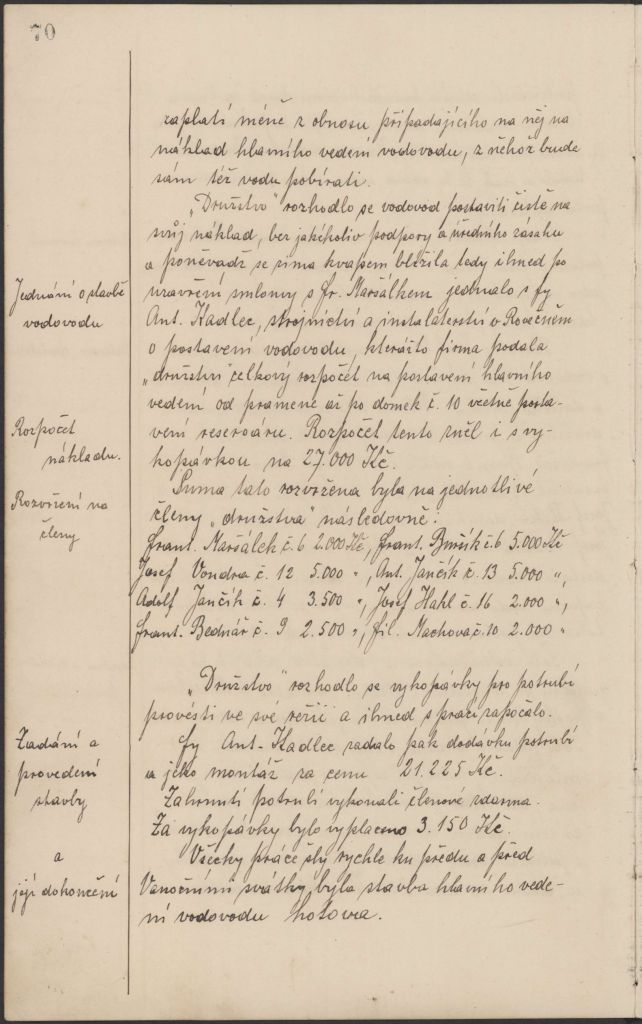 70
zaplatí méně z obnosu připadajícího na něj na
náklad hlavního vedení vodovodu, z něhož bude
sám též vodu pobírati.
„Družstvo" rozhodlo se vodovod postaviti čistě na
svůj náklad, bez jakékoliv podpory a úředního zásahu
a poněvadž se zima kvapem blížila tedy ihned po
Jednání o stavbě
vodovodu
uzavření smlouvy s Fr. Maršálkem jednalo s fy
Ant. Kadlec, strojnictví a instalaterství v Rovečném
o postavení vodovodu, kterážto firma podala
„družstvu" celkový rozpočet na postavení hlavního
vedení od pramene až po domek č. 10 včetně posta-
Rozpočet
nákladu.
vení reservoáru. Rozpočet tento zněl i s vy-
kopávkou na 27.000 Kč.
Rozvržení na
členy
Suma tato rozvržena byla na jednotlivé
členy „družstva" následovně:
Frant. Maršálek č. 6 2.000 Kč, Frant. Buršík č. 6 5.000 Kč
Josef Vondra č. 12 5.000 „, Ant. Jančík č. 13 5.000 „,
Adolf Jančík č. 4 3.500 „, Josef Hahl č. 16 2.000 „,
Frant. Bednář č. 9 2.500 „, Fil. Machova č. 10 2.000 „
„Družstvo" rozhodlo se vykopávky pro potrubí
provésti ve své režii a ihned s prací započalo.
Zadání a
provedení
stavby
Fy Ant. Kadlec zadalo pak dodávku potrubí
a jeho montáž za cenu 21.225 Kč.
Zahrnutí potrubí vykonali členové zdarma.
Za vykopávky bylo vyplaceno 3.150 Kč.
a
její dokončení
Všecky práce šly rychle ku předu a před
Vánočními svátky byla stavba hlavního vede-
ní vodovodu hotova.